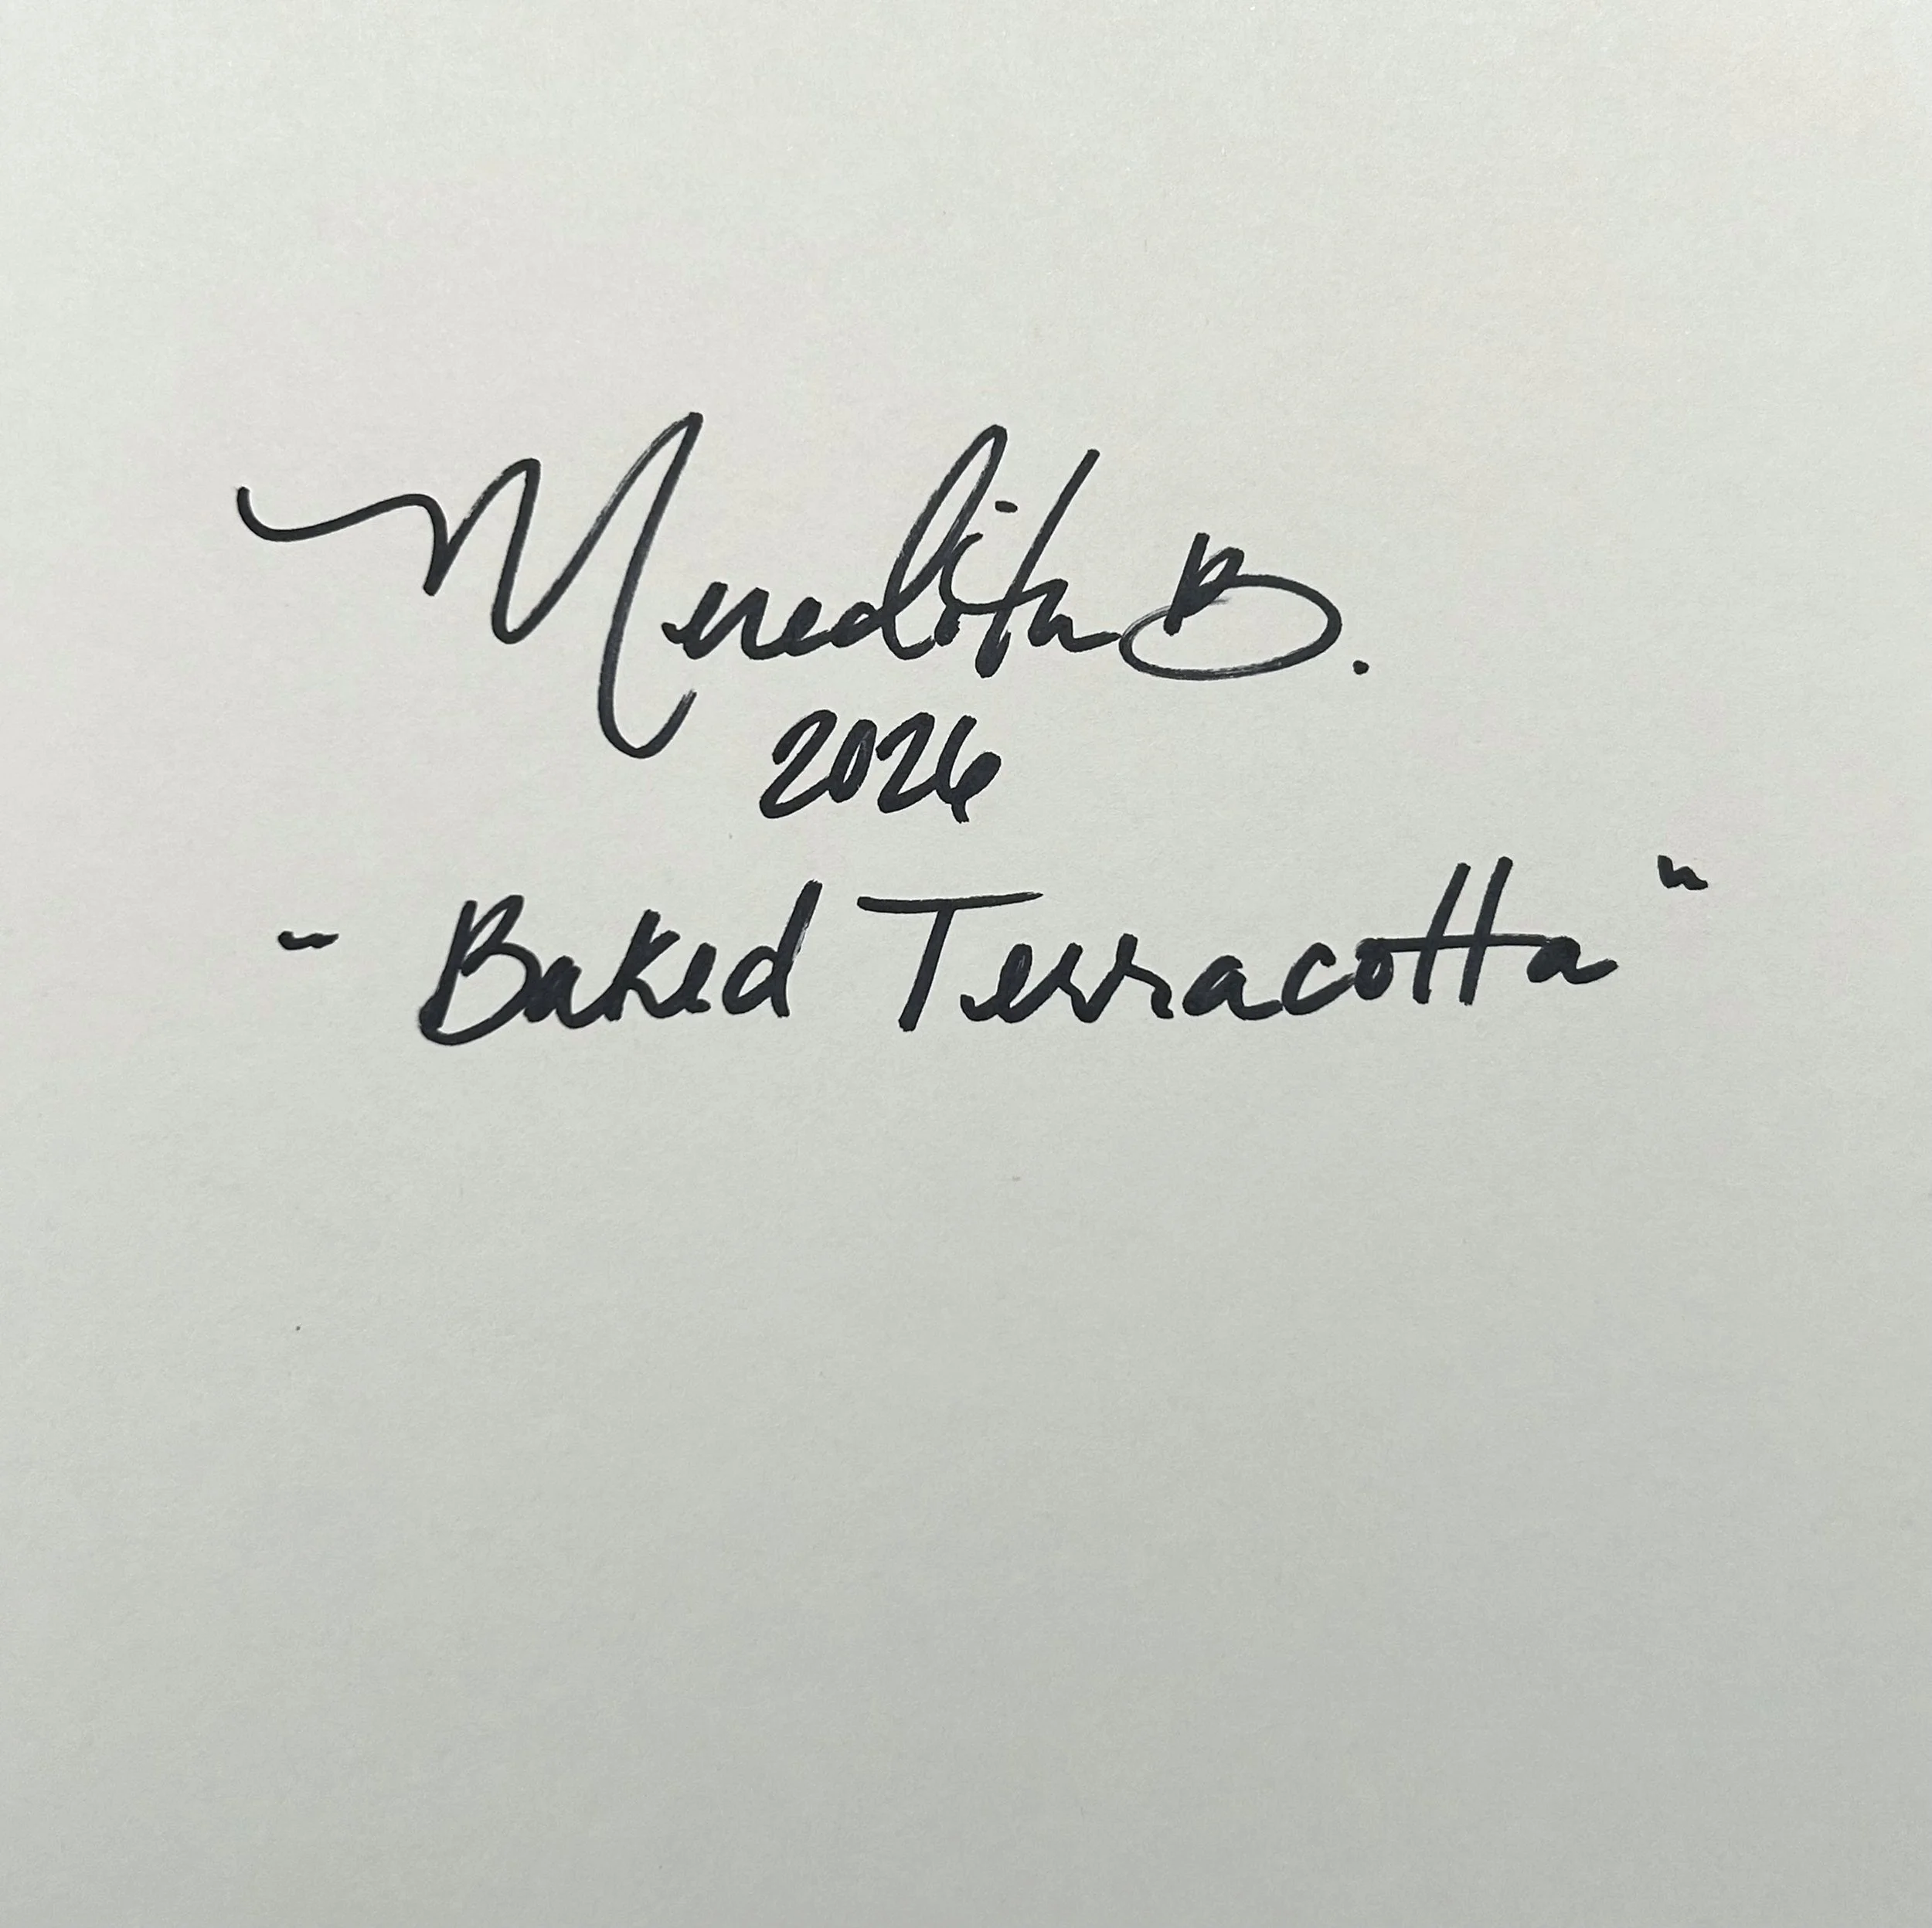 Meredith B.
2026
"Baked Terracotta"